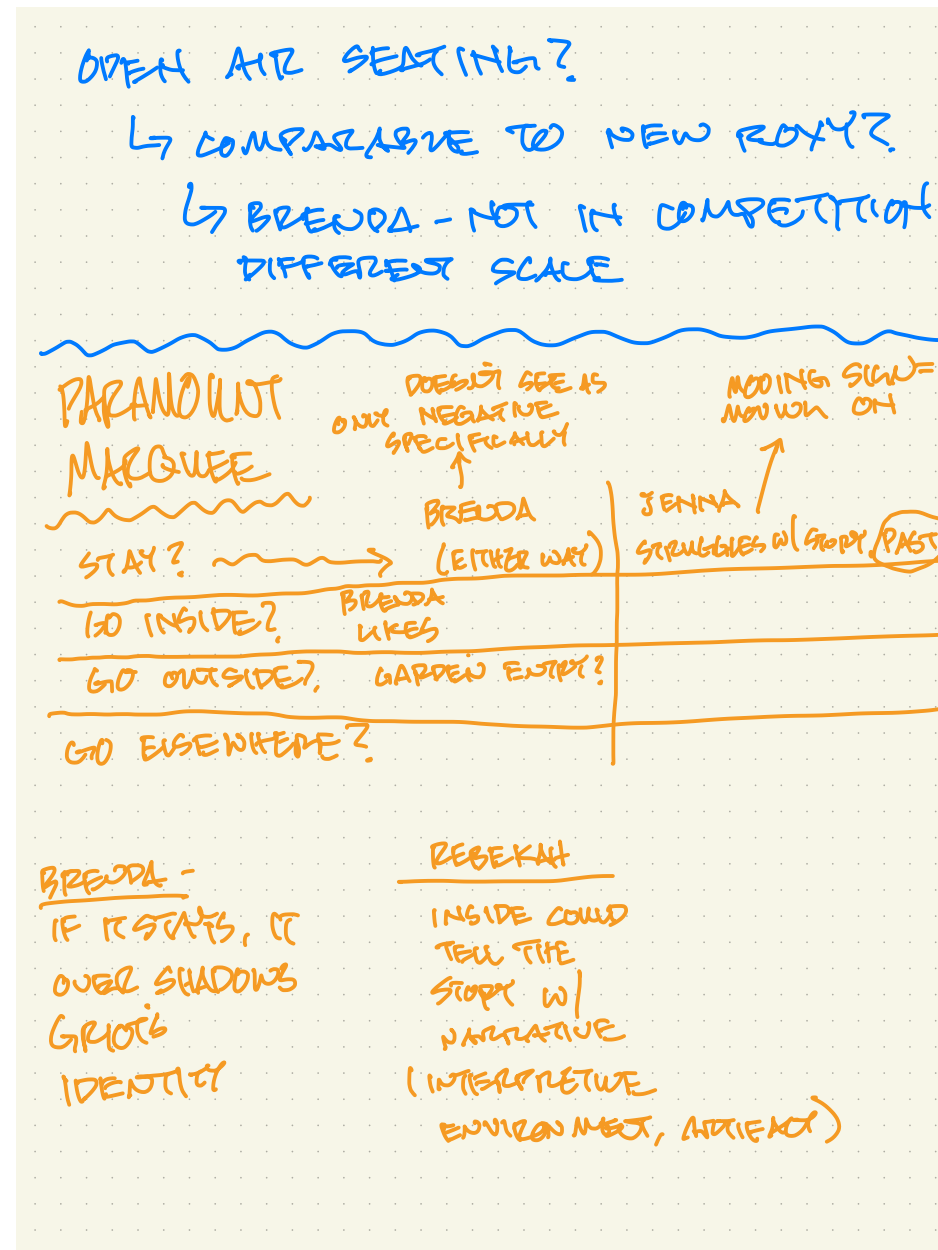 OPEN AIR SEATING?
↳ COMPARABLE TO NEW ROXY?
↳ BRENDA - NOT IN COMPETITION
DIFFERENT SCALE
PARAMOUNT
MARQUEE
DOESN'T SEE AS
ONLY NEGATIVE
SPECIFICALLY
MOVING SIGN =
MOVING ON
BRENDA
(EITHER WAY)
JENNA
STRUGGLES W/ STORY, PAST
STAY?
GO INSIDE? BRENDA
LIKES
GO OUTSIDE? GARDEN ENTRY?
GO ELSEWHERE?
BRENDA -
IF IT STAYS, IT
OVER SHADOWS
GRIOT'S
IDENTITY
REBEKAH
INSIDE COULD
TELL THE
STORY W/
NARRATIVE
(INTERPRETIVE
ENVIRONMENT, ARTIFACT)